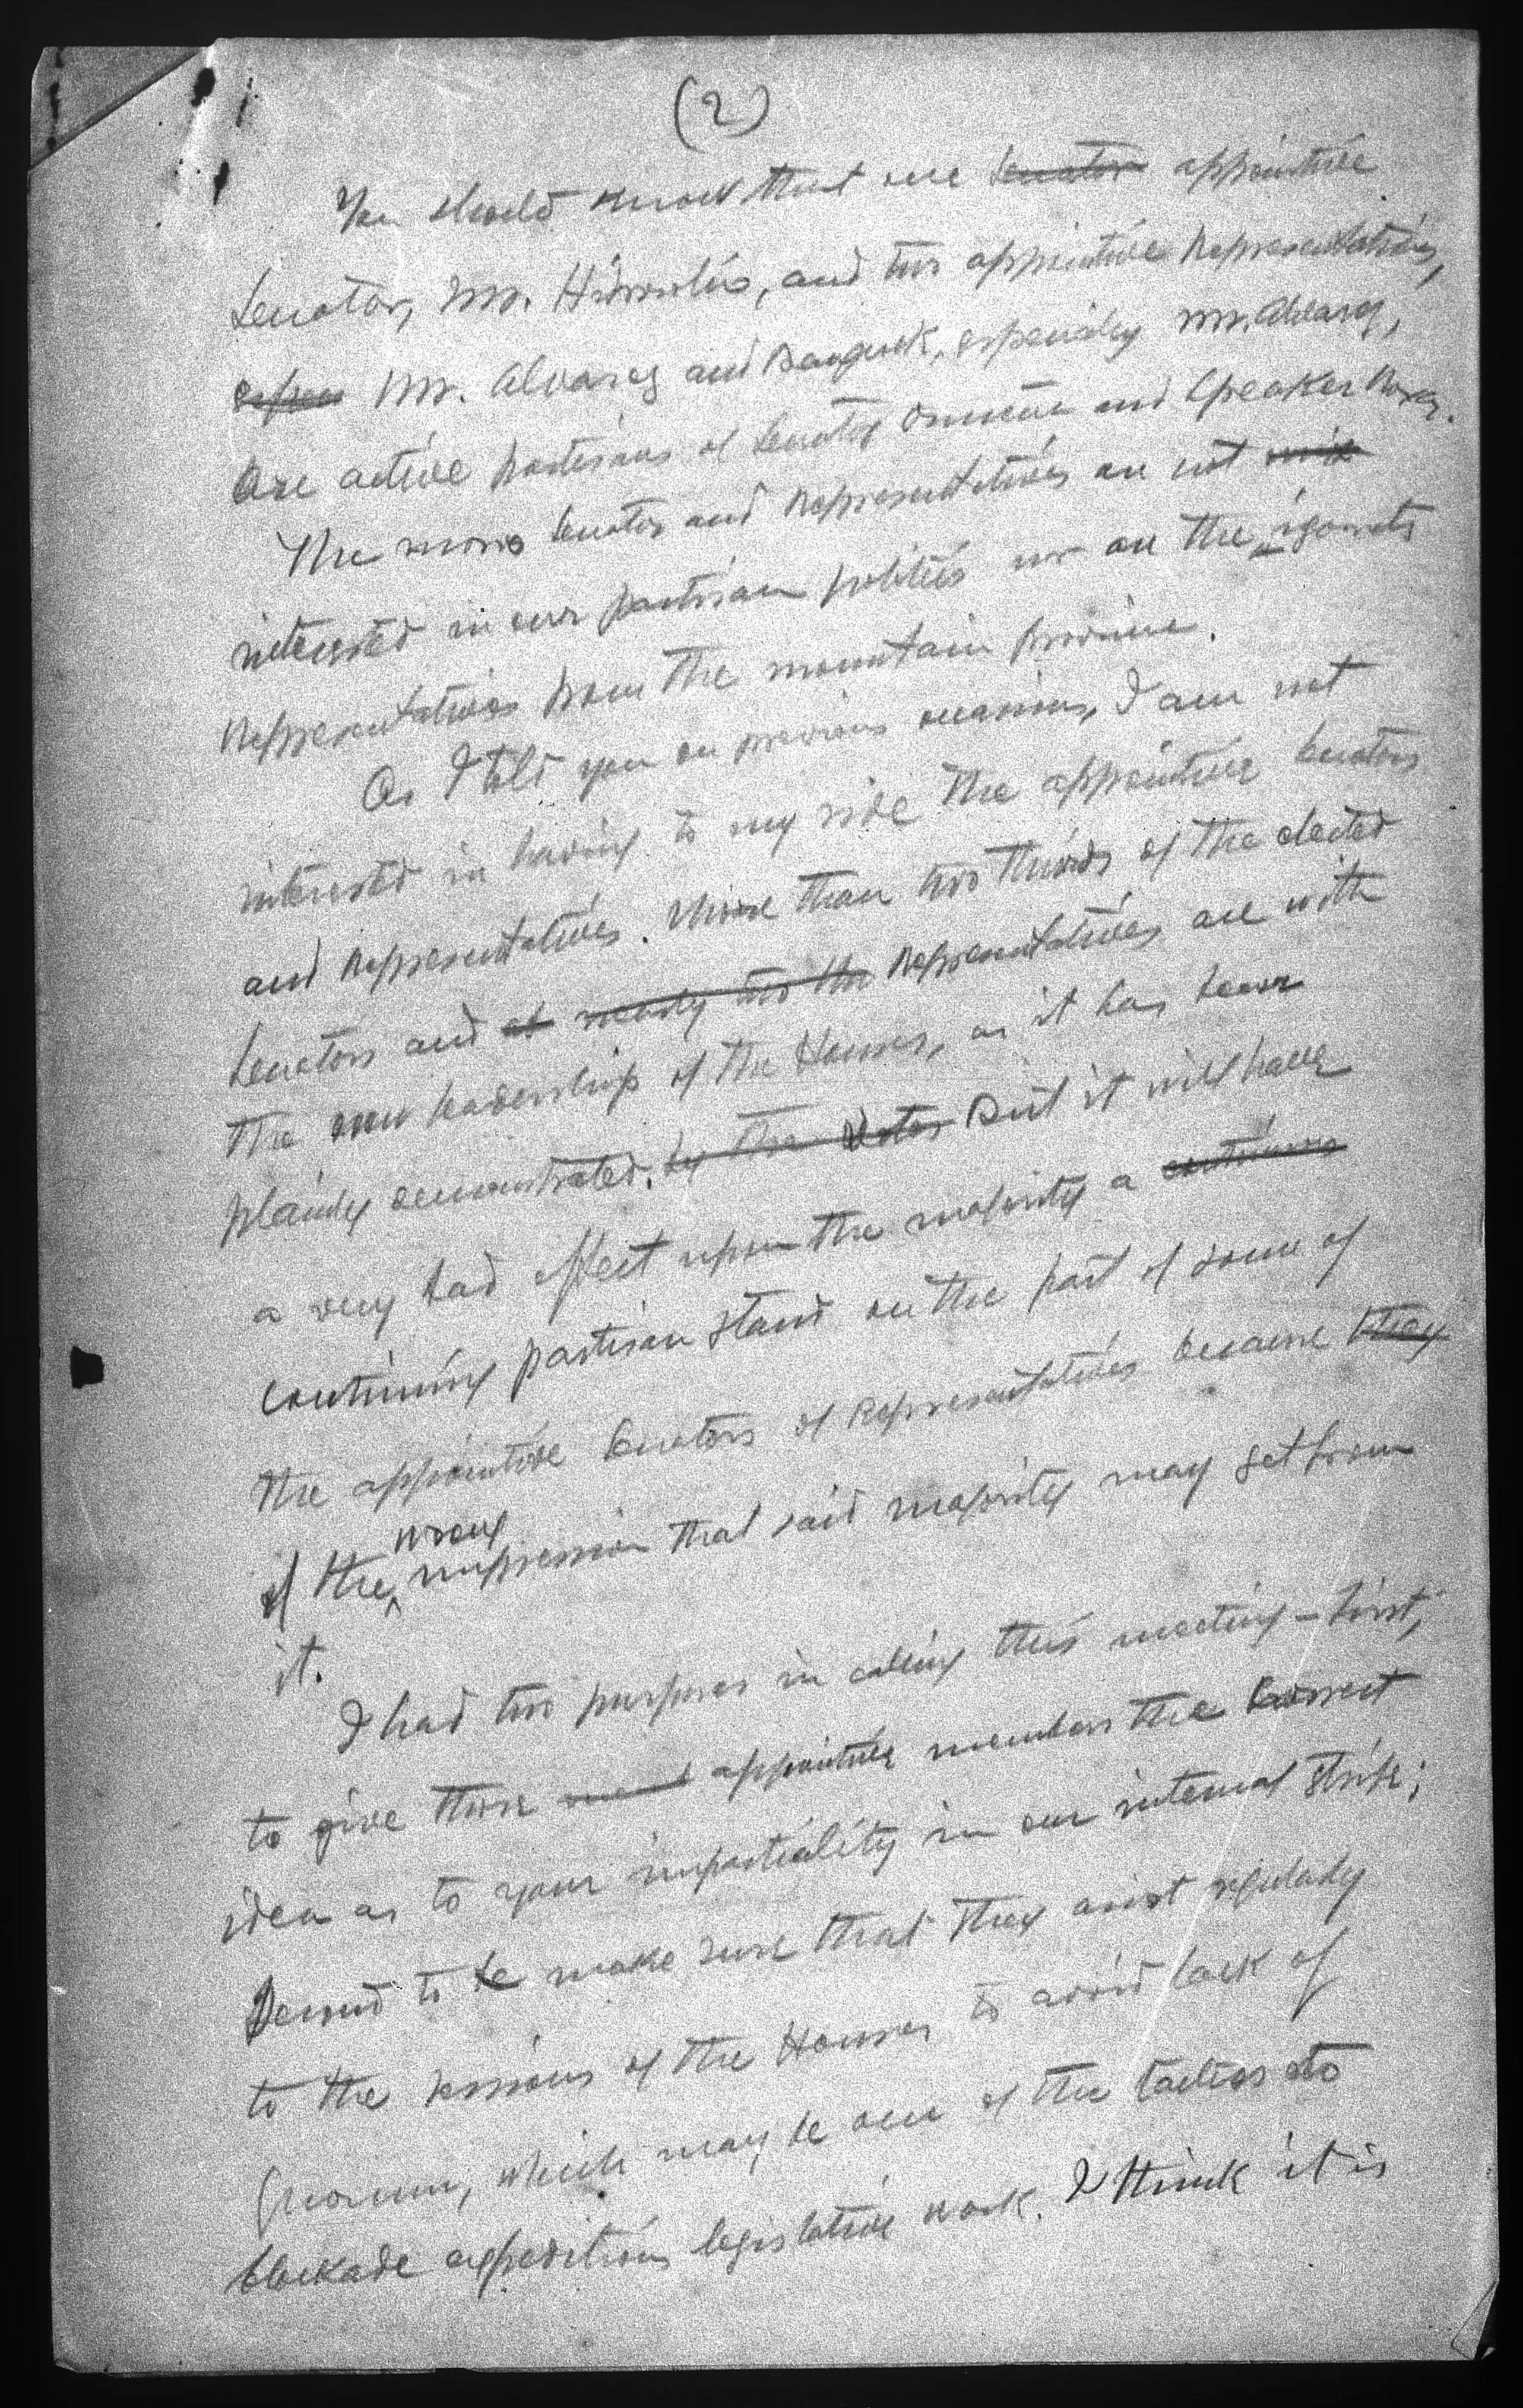 (2)
You should know that one senator appointive
Senator, Mr. Hilario, and two appointive Representatives,
espec Mr. Alvarez and Dangwa, especially Mr. Alvarez,
are active partisans of Senator Osmeña and Speaker Roxas.
The moro Senator and Representatives are not
interested in our partisan politics nor are the igorots
Representatives from the mountain Province.
As I told you on previous occasions, I am not
interested in having to my side the appointive Senators
and Representatives. More than two thirds of the elected
Senators and of nearly two the Representatives are with
the new leadership of the Houses, as it has been
plainly demonstrated. by the votes But it will have
a very bad effect upon the majority a continuing
continuing partisan stand on the part of some of
the appointive Senators of Representatives because they
of the wrong impression that said majority may get from
it.
I had two purposes in calling this meeting - first,
to give those appointive members the correct
idea as to your impartiality in our internal strife;
Second to be make sure that they assist regularly
to the sessions of the Houses to avoid lack of
Quorum, which may be one of the tactics to
blockade expeditious legislative work. I think it is